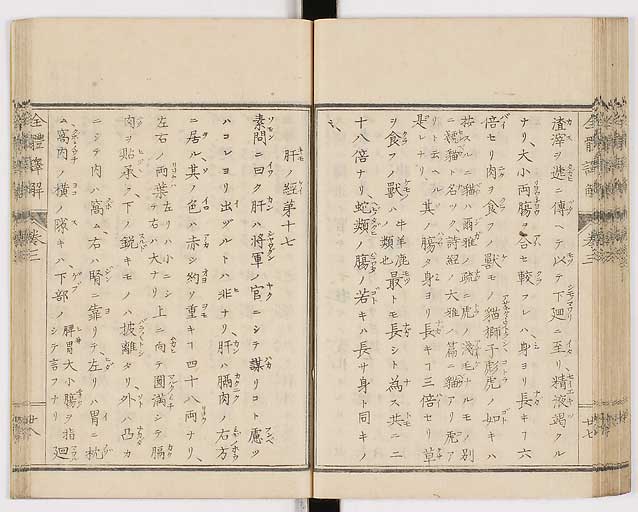 渣滓ヲ逓ニ傳ヘテ以テ下廻ニ至リ、精液竭クル
ナリ、大小両腸ヲ合セ較フレハ身ヨリ長キ六
倍セリ肉ヲ食フノ獣モノ猫獅子彪虎ノ如キハ
按スルニ猫ハ爾雅ノ疏ニ虎ノ淺毛ナルモノ別
ニ猫ト名ツク、詩経ノ大雅ノ篇ニ猫アリ虎ア
リト云ヘル是レナリ、其ノ腸タ身ヨリ長キ三倍セリ草
ヲ食フノ獣ハ牛羊鹿ノ類也最トモ長シト為ス共ニ二
十八倍ナリ、蛇類ノ腸ノ若キハ長サ身ト同キノ
ミ、
全體譯解
巻三
廿七
肝ノ經第十七
素問ニ曰ク肝ハ将軍ノ官ニシテ謀リコト慮ツ
ハコレヨリ出ヅルトハ非ナリ、肝ハ膈肉ノ右方
ニ居ル、其ノ色ハ赤シ約ソ重キ四十八両ナリ、
左右ノ両葉左リハ小ニシテ右ハ大ナリ上ニ向テ圓満シテ膈
肉ヲ貼承ク、下ノ鋭キモノハ披離タリ、外ハ凸カ
ニシテ内ハ窩ム、右ハ腎ニ靠リテ、左リハ胃ニ枕
ム、窩内ノ横ノ隊キハ下部ノ脾胃大小腸ヲ指シテ言フナリ廻
全體譯解
巻三
廿八